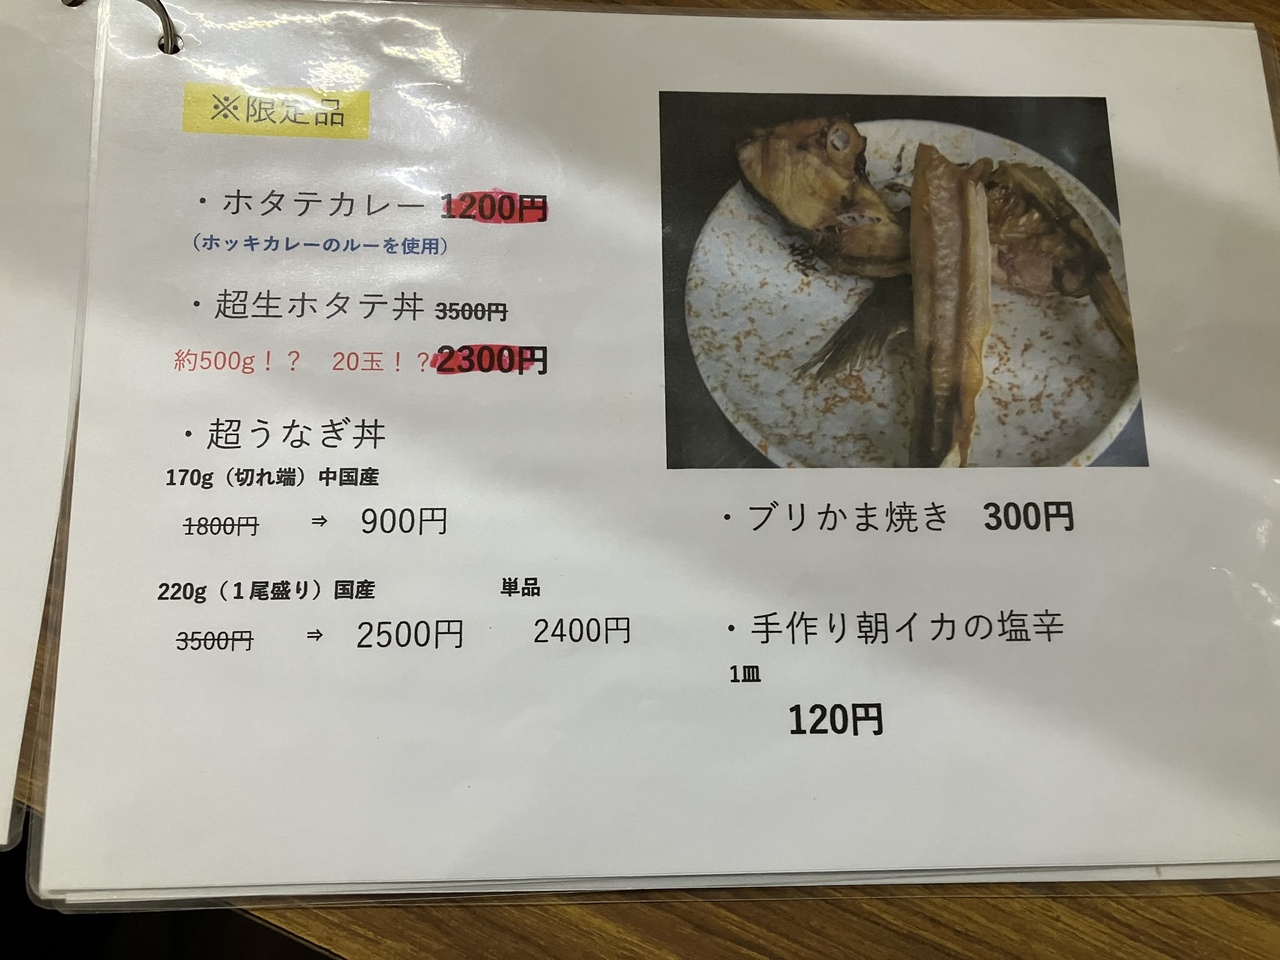 ※限定品
・ホタテカレー 1200円
（ホッキカレーのルーを使用）
・超生ホタテ丼 3500円
約500g！？　20玉！？2300円
・超うなぎ丼
170g（切れ端）中国産
1800円　⇒　900円
220g（１尾盛り）国産　単品
3500円　⇒　2500円　2400円
・ブリかま焼き　300円
・手作り朝イカの塩辛
1皿
120円